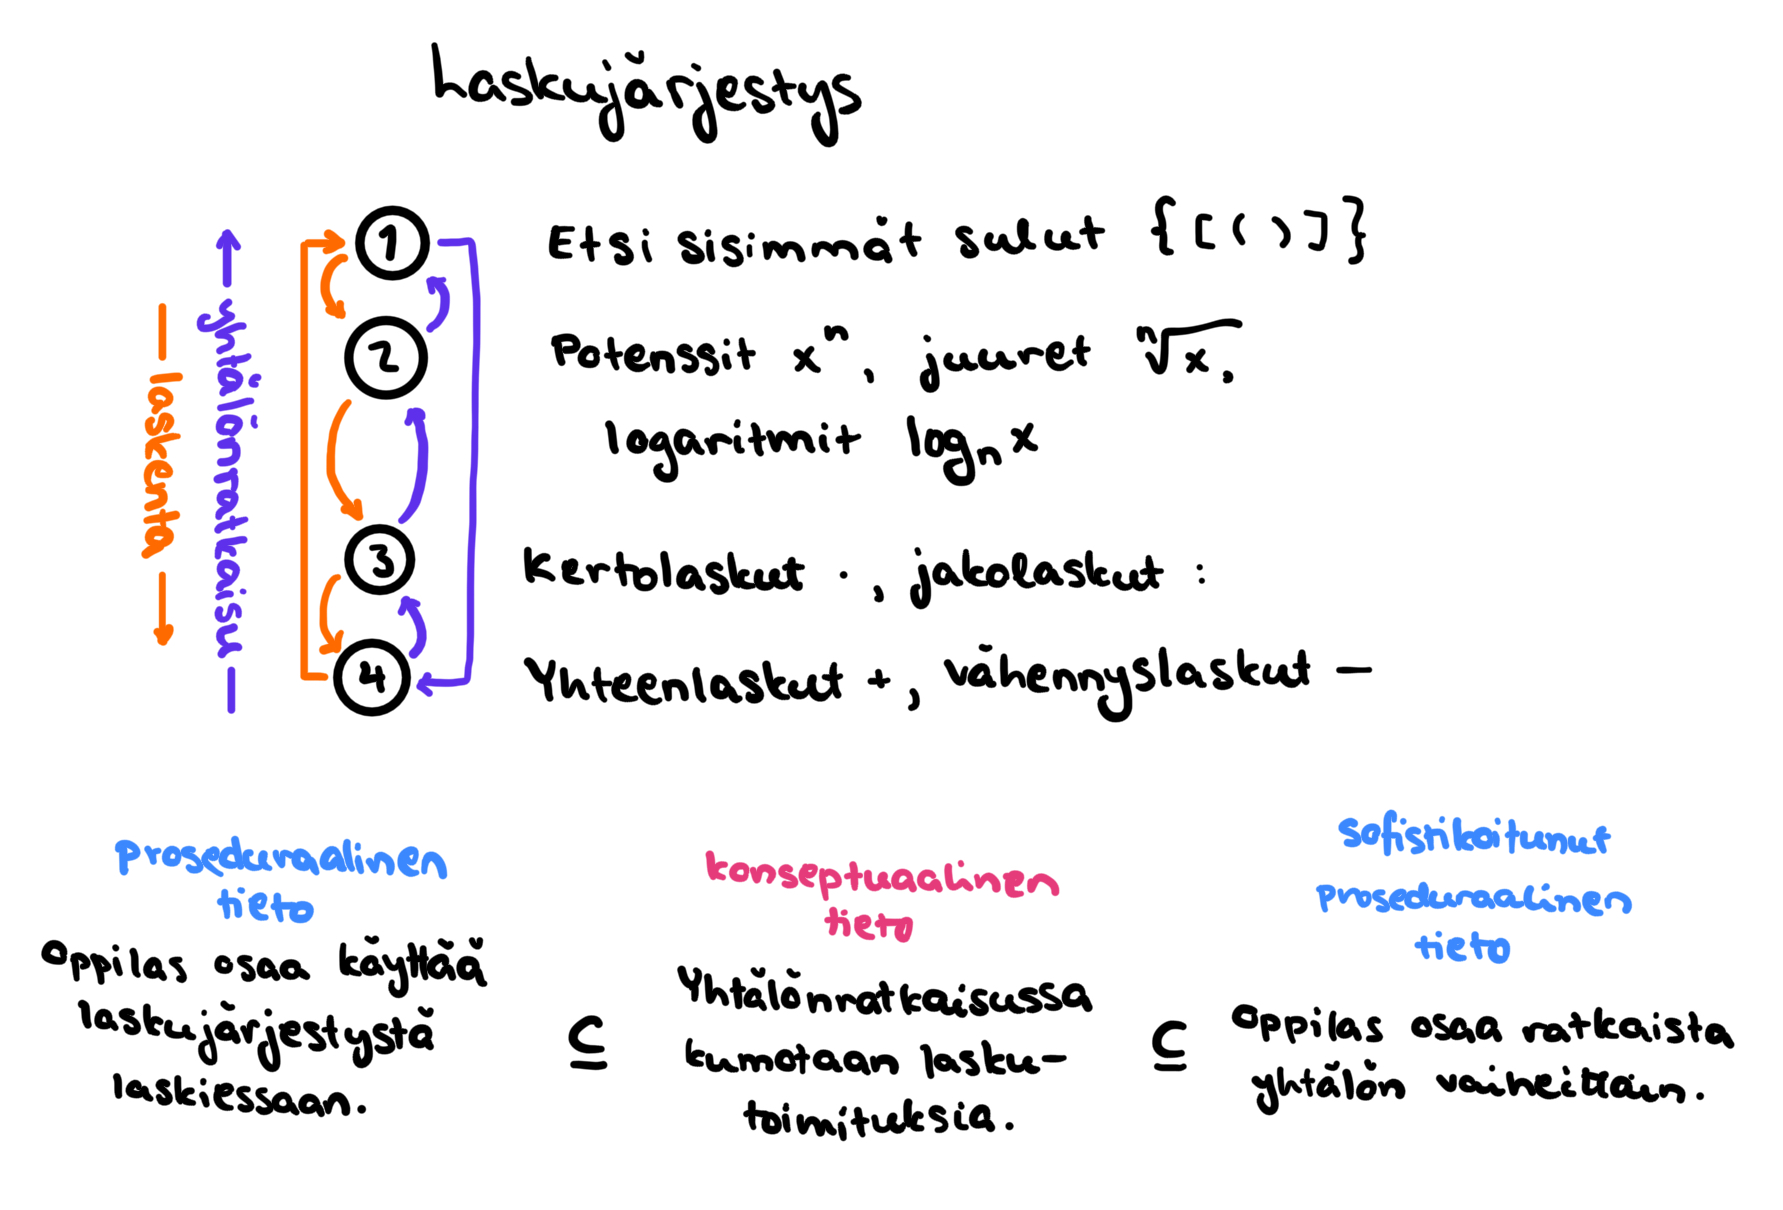 Laskujärjestys
1 Etsi sisimmät sulut {[()]}
2 Potenssit xⁿ, juuret ⁿ√x,
logaritmit logₙ x
3 Kertolaskut ·, jakolaskut :
4 Yhteenlaskut +, vähennyslaskut –
← yhtälönratkaisu —
— laskenta →
proseduraalinen
tieto
Oppilas osaa käyttää
laskujärjestystä
laskiessaan.
⊆
konseptuaalinen
tieto
Yhtälönratkaisussa
kumotaan lasku-
toimituksia.
⊆
sofistikoitunut
proseduraalinen
tieto
Oppilas osaa ratkaista
yhtälön vaiheittain.